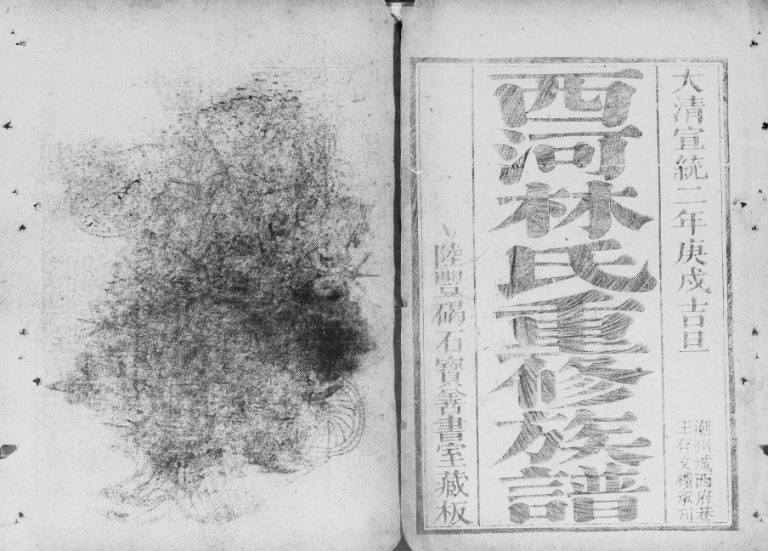 大清宣統二年庚戌吉旦
潮州城西府巷
王存文樓承刊
西河林氏重修族譜
陸豐碣石寶善書室藏板